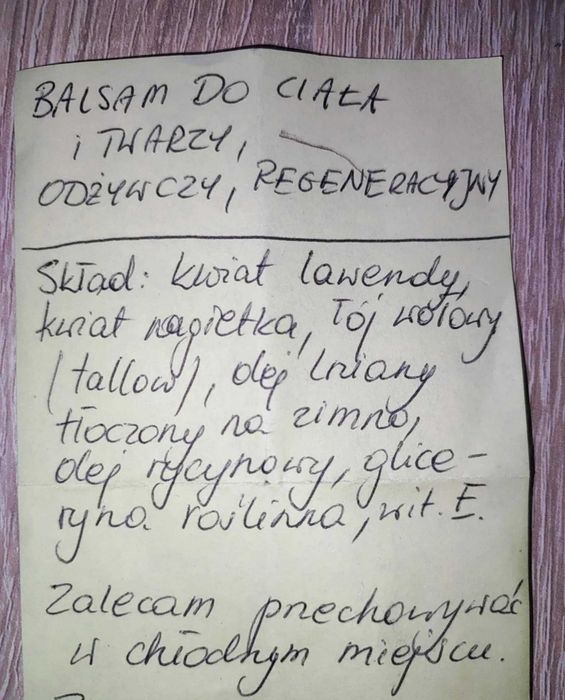 BALSAM DO CIAŁA
i TWARZY,
ODŻYWCZY, REGENERACYJNY
Skład: kwiat lawendy,
kwiat nagietka, łój wołowy
(tallow), olej lniany
tłoczony na zimno,
olej rycynowy, glice-
ryna roślinna, wit. E.
Zalecam przechowywać
w chłodnym miejscu.